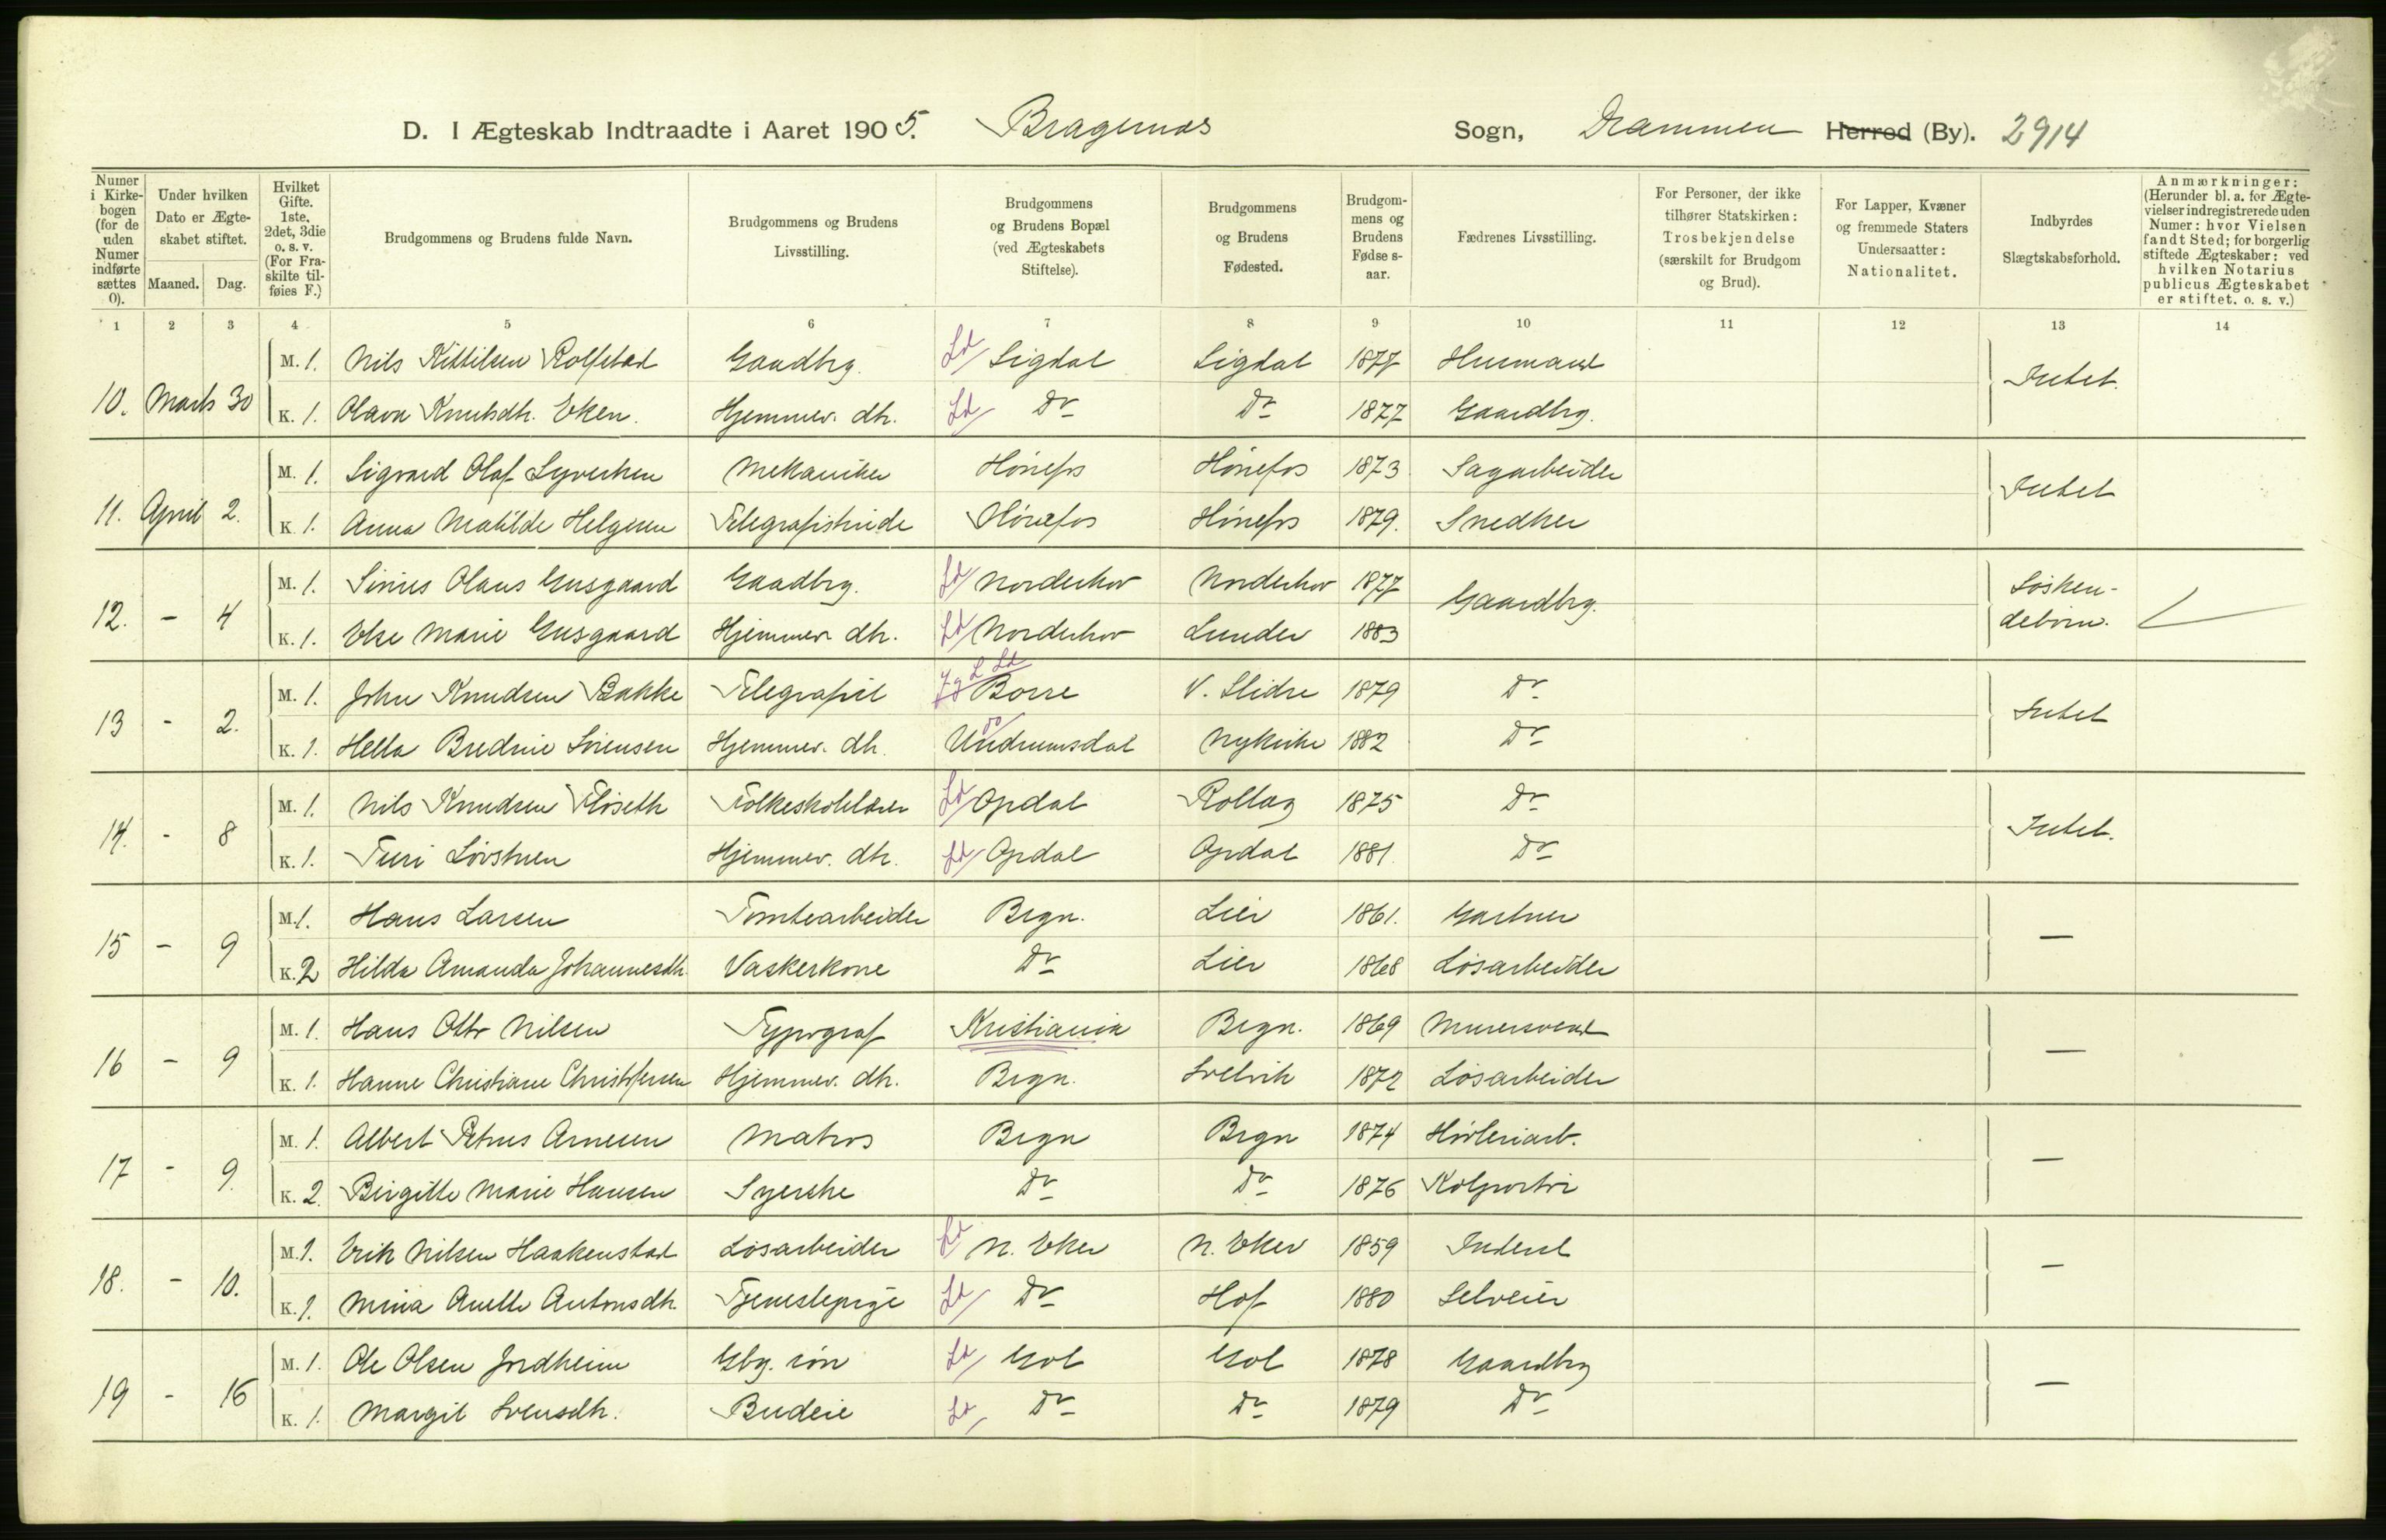 D. I Ægteskab Indtraadte i Aaret 1905. Bragernes Sogn, Drammen Herred (By). 2914
Numer i Kirkebogen (for de uden Numer indførte sættes 0).
Under hvilken Dato er Ægteskabet stiftet.
Maaned. Dag.
Hvilket Gifte. 1ste, 2det, 3die o. s. v. (For Fraskilte tilføies F.)
Brudgommens og Brudens fulde Navn.
Brudgommens og Brudens Livsstilling.
Brudgommens og Brudens Bopæl (ved Ægteskabets Stiftelse).
Brudgommens og Brudens Fødested.
Brudgommens og Brudens Fødse s-aar.
Fædrenes Livsstilling.
For Personer, der ikke tilhører Statskirken: Trosbekjendelse (særskilt for Brudgom og Brud).
For Lapper, Kvæner og fremmede Staters Undersaatter: Nationalitet.
Indbyrdes Slægtskabsforhold.
Anmærkninger: (Herunder bl. a. for Ægtevielser indregistrerede uden Numer: hvor Vielsen fandt Sted; for borgerlig stiftede Ægteskaber: ved hvilken Notarius publicus Ægteskabet er stiftet. o. s. v.)
1 2 3 4 5 6 7 8 9 10 11 12 13 14
M. 1. Nils Kittilsen Rolfstad Gaardbrg. Ld Sigdal Sigdal 1877 Husmand
10. Marts 30 Intet.
K. 1. Olava Knutsdh. Eken. Hjemmev. dh. Ld Do Do 1877 Gaardbrg.
M. 1. Sigvard Olaf Syvertsen Mekaniker Hønefos Hønefos 1873 Sagarbeider
11. April 2. Intet
K. 1. Anna Matilde Helgesen Telegrafistinde Hønefos Hønefos 1879. Snedker
M. 1. Sirius Olaus Gusgaard Gaardbrg. Ld Norderhov Norderhov 1877
12. - 4 Gaardbrg. Søskendebørn.
K. 1. Else Marie Gusgaard Hjemmev. dh. Ld Norderhov Lunder 1883
M. 1. John Knudsen Bakke Telegrafist Ld Borre V. Slidre 1879 Do
13 - 2. Intet
K. 1. Hella Bredine Sørensen Hjemmev. dh. Undrumsdal Nykirke 1882 Do
M. 1. Nils Knudsen Fløseth Folkeskolelærer Ld Opdal Rollag 1875 Do
14. - 8 Intet.
K. 1. Turi Løvstuen Hjemmev. dh. Ld Opdal Opdal 1881. Do
M. 1. Hans Larsen Tomtearbeider Brgn. Lier 1861. Gartner
15 - 9 —
K. 2 Hilda Amanda Johannesdh. Vaskerkone Do Lier 1868 Løsarbeider
M. 1. Hans Otto Nilsen Typograf Kristiania Brgn. 1869 Murersvend
16 - 9 —
K. 1. Hanne Christiane Christofersen Hjemmev. dh. Brgn. Svelvik 1872 Løsarbeider
M. 1. Albert Petrus Arnesen Matros Brgn Brgn 1874 Høvleriarb.
17 - 9. —
K. 2. Birgitte Marie Hansen Syerske Do Do 1876 Kolportør
M. 1. Erik Nilsen Haakenstad Løsarbeider Ld N. Eker N. Eker 1859 Inderst
18. - 10. —
K. 1. Mina Anette Antonsdh. Tjenestepige Ld Do Hof 1880 Selveier
M. 1. Ole Olsen Jordheim Gbg. søn Ld Gol Gol 1878 Gaardbrg
19 - 16 —
K. 1. Margit Svensdh. Budeie Ld Do Do 1879 Do